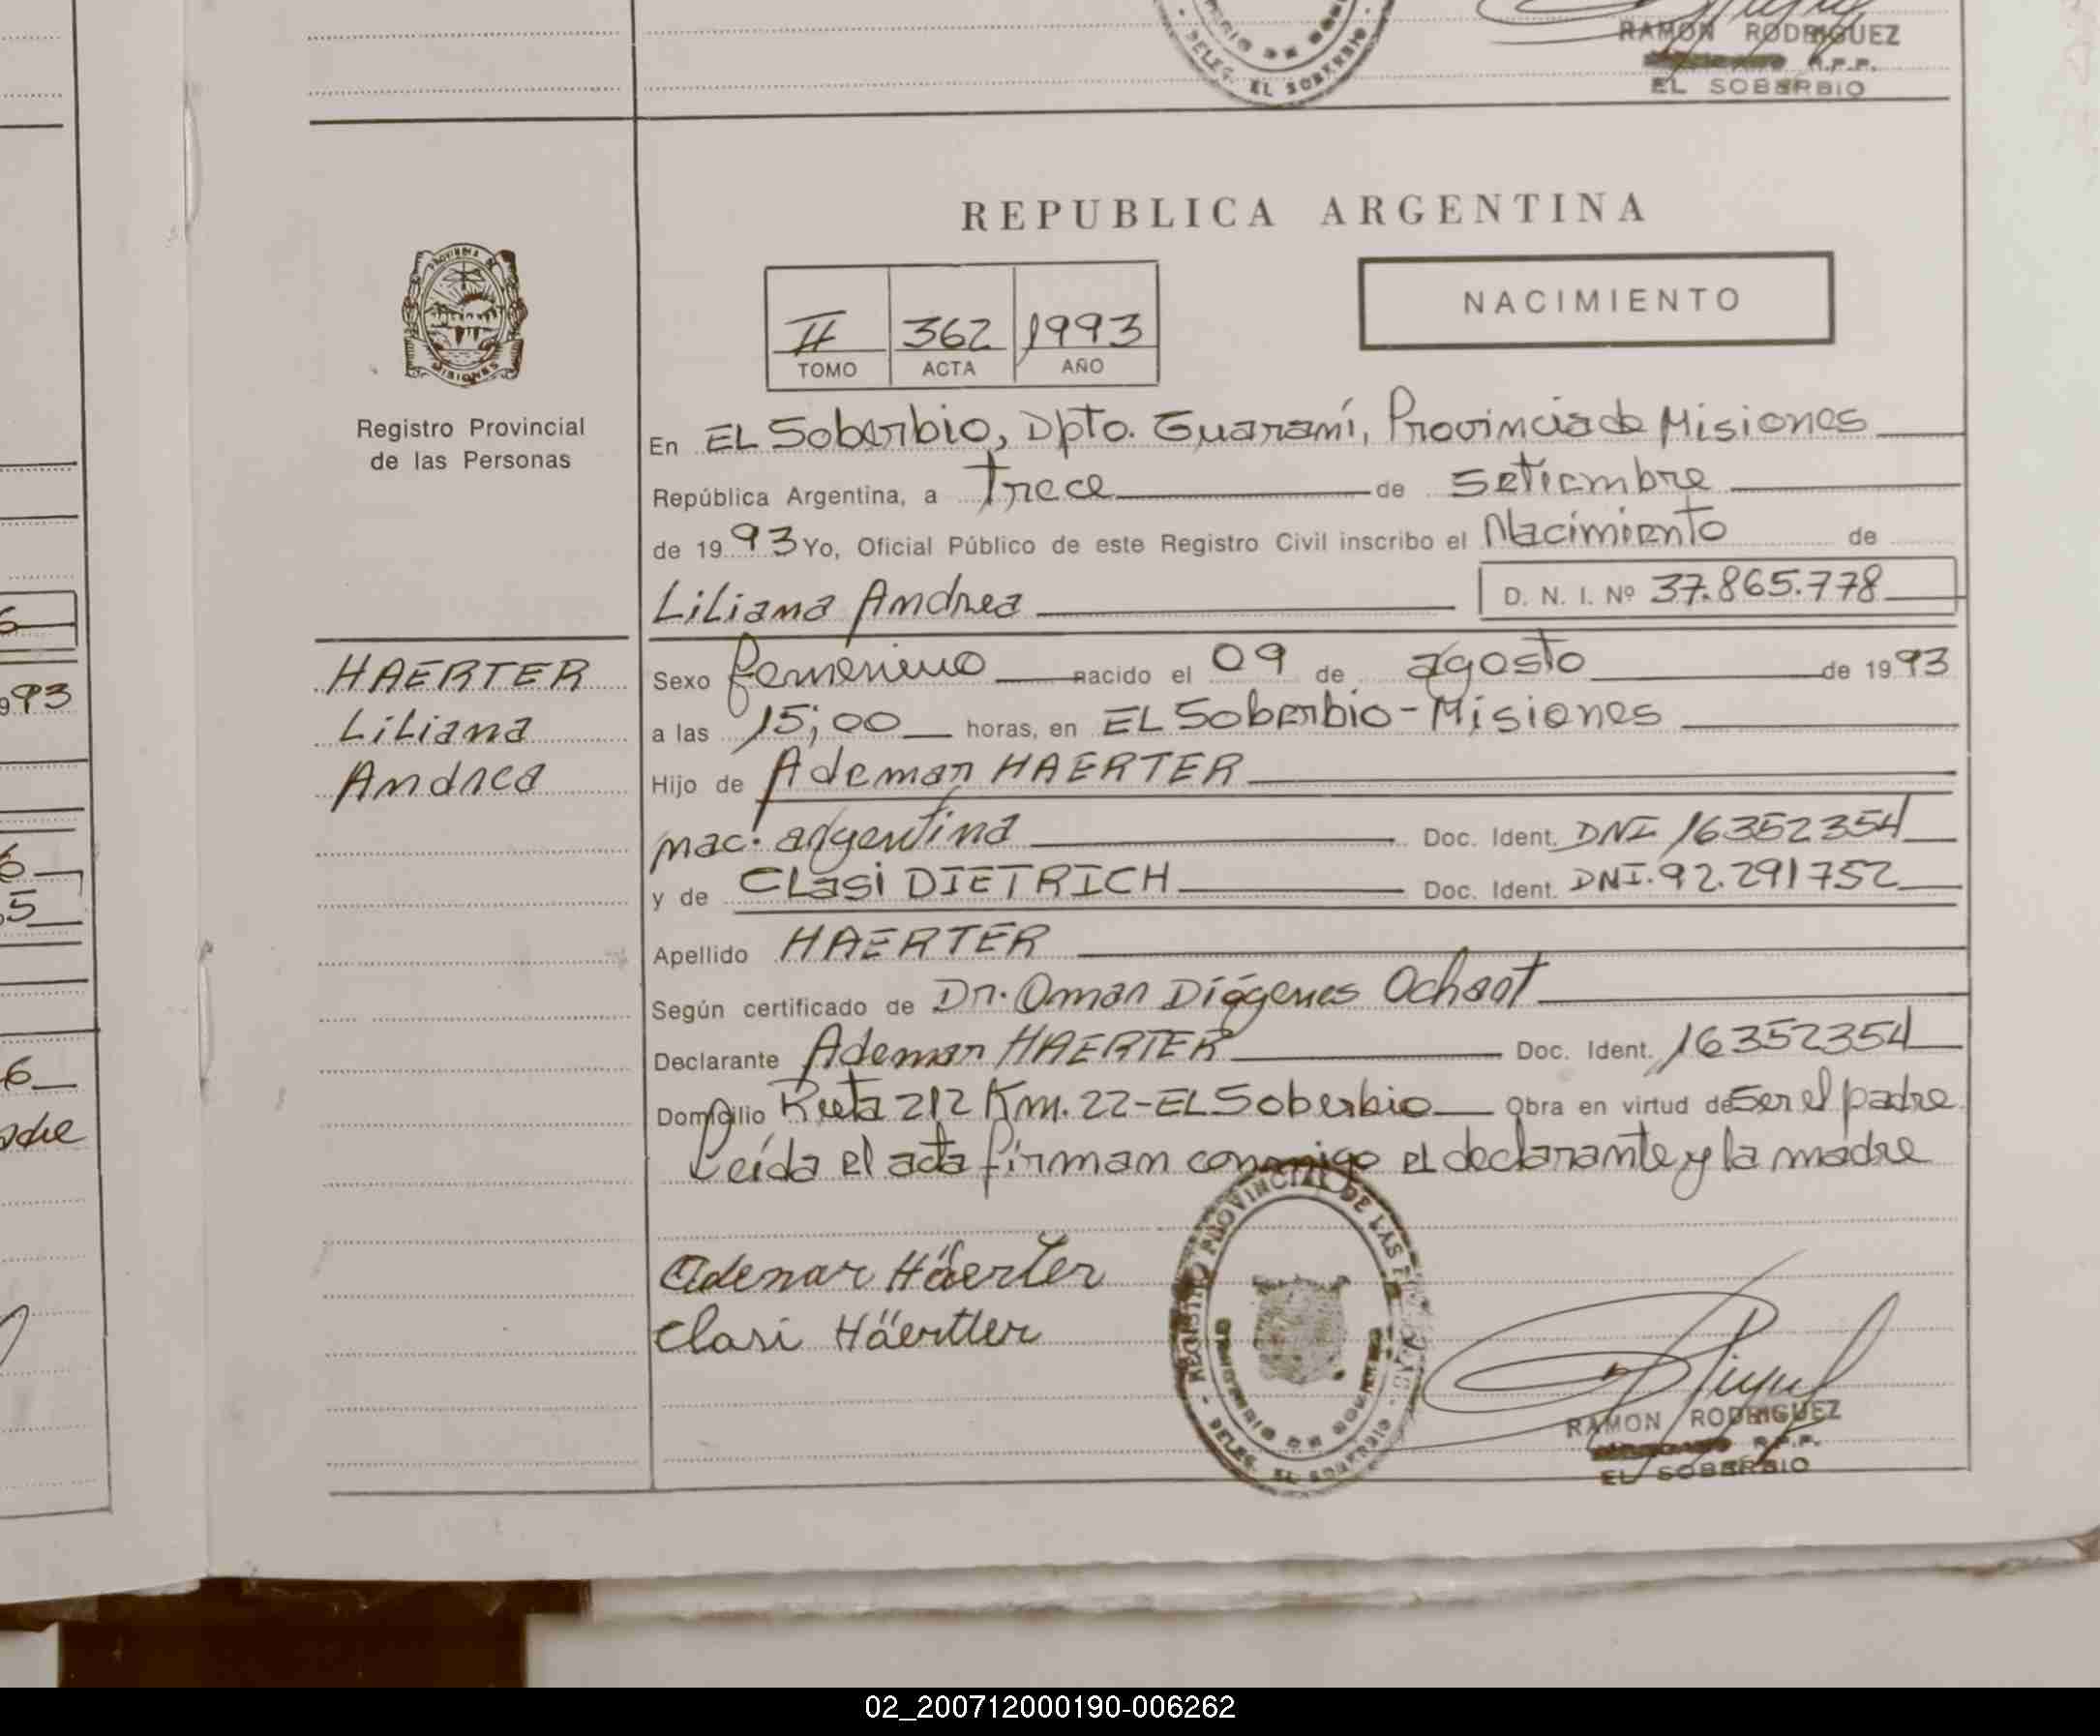 RAMON RODRIGUEZ
R.P.P.
EL SOBERBIO
DELEG. EL SOBERBIO
REPUBLICA ARGENTINA
PROVINCIA DE
MISIONES
NACIMIENTO
II 362 1993
TOMO ACTA AÑO
Registro Provincial
de las Personas
En EL Soberbio, Dpto. Guaraní, Provincia de Misiones
República Argentina, a Trece de Setiembre
de 1993 Yo, Oficial Público de este Registro Civil inscribo el Nacimiento de
Liliana Andrea D. N. I. Nº 37.865.778
HAERTER
Liliana
Andrea
Sexo femenino nacido el 09 de agosto de 1993
a las 15;00 horas, en EL Soberbio - Misiones
Hijo de Ademar HAERTER
nac. argentina Doc. Ident. DNI 16352354
y de CLasi DIETRICH Doc. Ident. DNI. 92.291752
Apellido HAERTER
Según certificado de Dr. Omar Diógenes Ochaot
Declarante Ademar HAERTER Doc. Ident. 16352354
Domicilio Ruta 212 Km. 22 - EL Soberbio Obra en virtud de Ser el padre
Leída el acta firman conmigo el declarante y la madre
Ademar Häerter
Clasi Häertter
REGISTRO PROVINCIAL DE LAS
DELEG. EL SOBERBIO
RAMON RODRIGUEZ
R.P.P.
EL SOBERBIO
993
6
5
6
adre
02_200712000190-006262